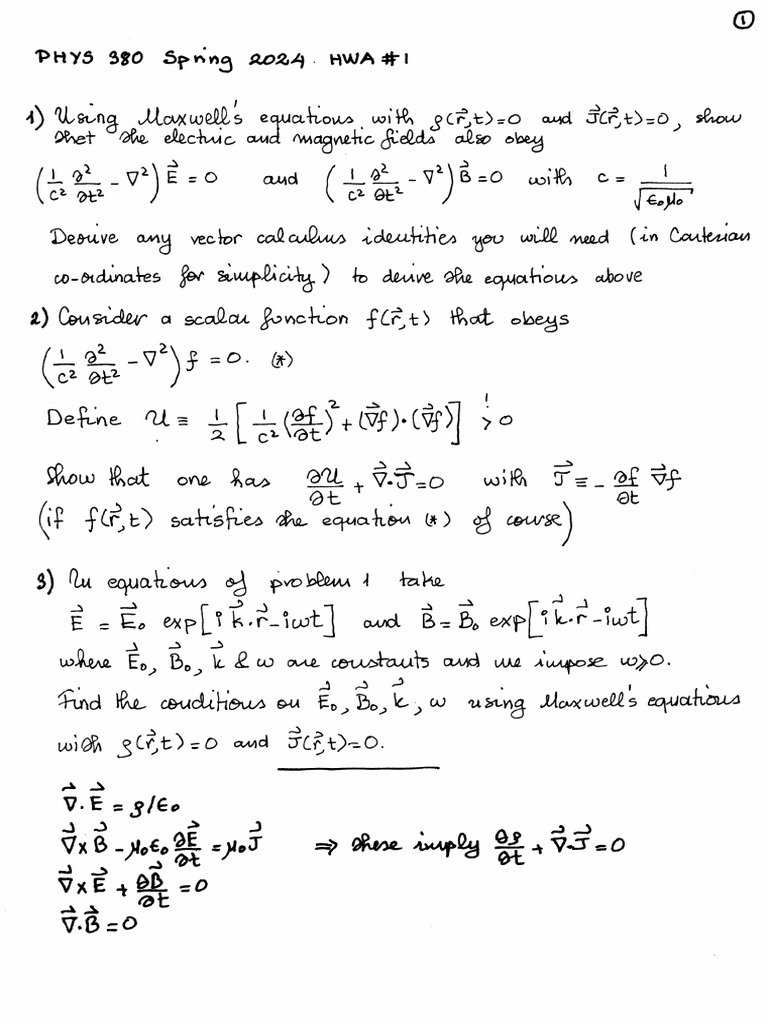 ①
PHYS 380 Spring 2024 HWA #1
1) Using Maxwell's equations with ρ(r⃗,t)=0 and J⃗(r⃗,t)=0, show
that the electric and magnetic fields also obey
(1/c² ∂²/∂t² - ∇²) E⃗ = 0 and (1/c² ∂²/∂t² - ∇²) B⃗ = 0 with c = 1/√(ε₀μ₀)
Derive any vector calculus identities you will need (in Cartesian
co-ordinates for simplicity) to derive the equations above
2) Consider a scalar function f(r⃗,t) that obeys
(1/c² ∂²/∂t² - ∇²) f = 0. (*)
Define U ≡ 1/2 [1/c² (∂f/∂t)² + (∇⃗f)·(∇⃗f)] >! 0
Show that one has ∂U/∂t + ∇⃗·J⃗ = 0 with J⃗ ≡ - ∂f/∂t ∇⃗f
(if f(r⃗,t) satisfies the equation (*) of course)
3) In equations of problem 1 take
E⃗ = E⃗₀ exp[i k⃗·r⃗ - iωt] and B⃗ = B⃗₀ exp[i k⃗·r⃗ - iωt]
where E⃗₀, B⃗₀, k⃗ & ω are constants and we impose ω⩾0.
Find the conditions on E⃗₀, B⃗₀, k⃗, ω using Maxwell's equations
with ρ(r⃗,t)=0 and J⃗(r⃗,t)=0.
∇⃗·E⃗ = ρ/ε₀
∇⃗×B⃗ - μ₀ε₀ ∂E⃗/∂t = μ₀J⃗ ⇒ these imply ∂ρ/∂t + ∇⃗·J⃗ = 0
∇⃗×E⃗ + ∂B⃗/∂t = 0
∇⃗·B⃗ = 0